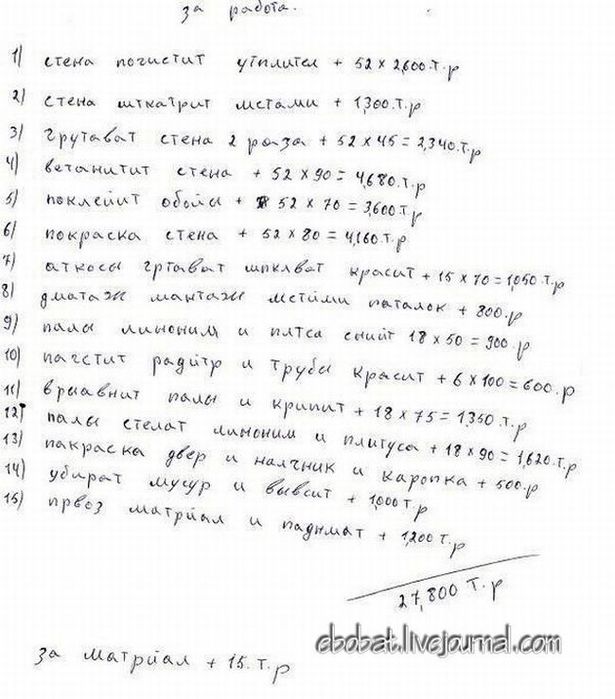 за работа.
1) стена почистит утплител + 52 x 2,600.т.р
2) стена шткатрит местами + 1,300.т.р
3) грутават стена 2 раза + 52 x 45 = 2,340.т.р
4) ветанитит стена + 52 x 90 = 4,680.т.р
5) поклейит обойы + 52 x 70 = 3,600 т.р
6) покраска стена + 52 x 80 = 4,160.т.р
7) аткосы гртават шпклват красит + 15 x 70 = 1,050 т.р
8) дматаж мантаж местими паталок + 800.р
9) палы линоним и плтса снийт 18 x 50 = 900.р
10) пагстит радитр и трубы красит + 6 x 100 = 600.р
11) врыавнит палы и крипит + 18 x 75 = 1,350 т.р
12) палы стелат линоним и плитуса + 18 x 90 = 1,620.т.р
13) пакраска двер и налчник и каропка + 500.р
14) убират мусур и вывсит + 1,000 т.р
15) првоз матрйал и паднмат + 1,200 т.р
27,800 т.р
за матрйал + 15.т.р
cbobat.livejournal.com